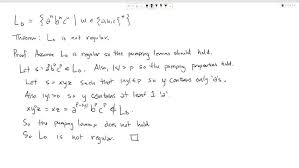 L₀ = { aⁿbⁿcⁿ | w ∈ {a,b,c}* }
Theorem: L₀ is not regular.
Proof. Assume L₀ is regular so the pumping lemma should hold.
Let s = aᵖbᵖcᵖ ∈ L₀. Also, |s| > p so the pumping properties hold.
Let s = xyz such that |xy| ≤ p so y contains only 'a's.
Also |y| > 0 so y contains at least 1 'a'.
xy⁰z = xz = bᵖcᵖ ∉ L₀.
So the pumping lemma does not hold
So L₀ is not regular. □